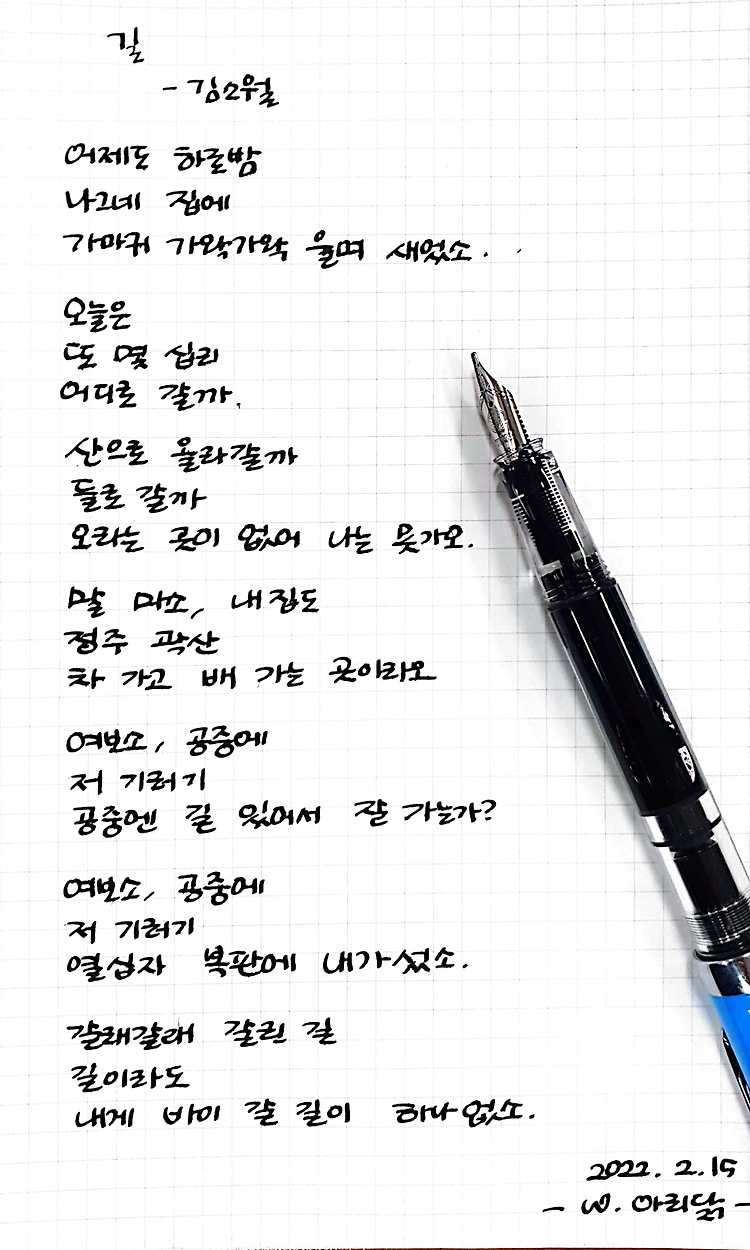 길
- 김소월
어제도 하로밤
나그네 집에
가마귀 가왁가왁 울며 새었소.
오늘은
또 몇 십리
어디로 갈까.
산으로 올라갈까
들로 갈까
오라는 곳이 없어 나는 못가오.
말 마소, 내 집도
정주 곽산
차 가고 배 가는 곳이라오
여보소, 공중에
저 기러기
공중엔 길 있어서 잘 가는가?
여보소, 공중에
저 기러기
열십자 복판에 내가 섰소.
갈래갈래 갈린 길
길이라도
내게 바이 갈 길이 하나 없소.
2022. 2. 15
- W. 아리닭 -